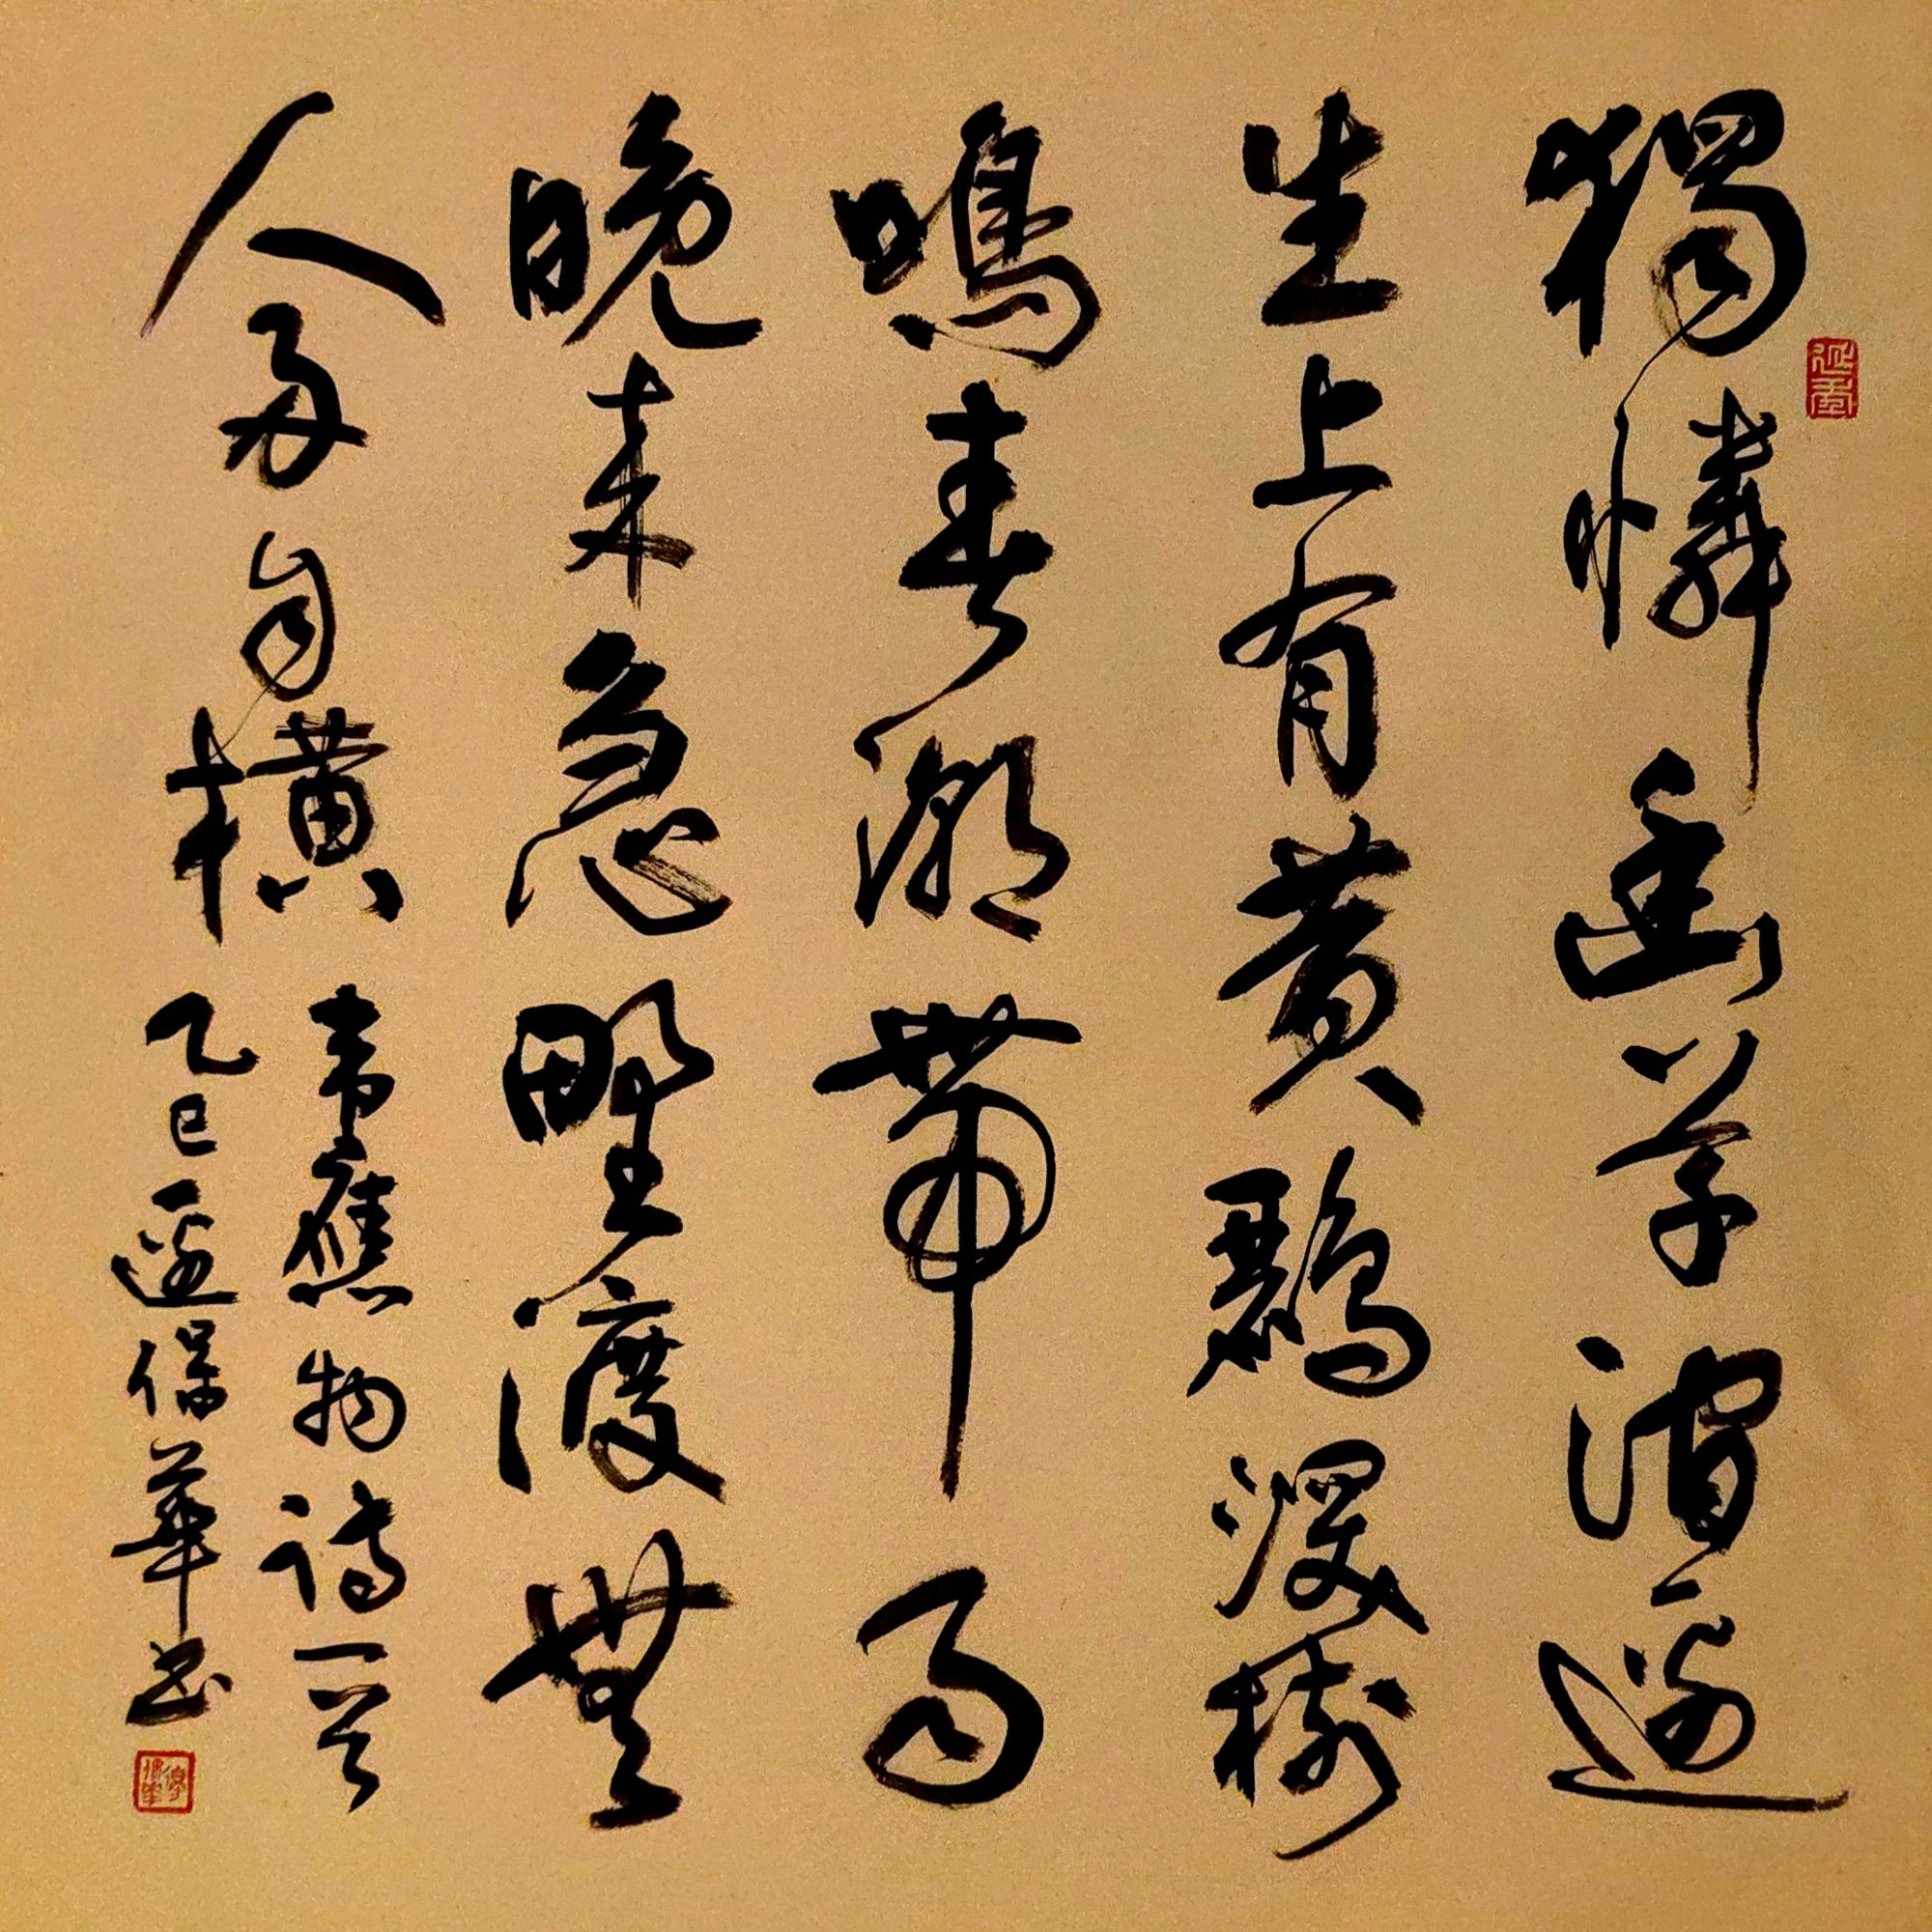 獨憐幽草澗邊
生上有黄鸝深樹
鳴春潮帶雨
晚来急野渡無
人舟自横
韋應物詩一首
乙巳邊保華書